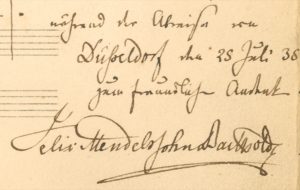 während der Abreise von
Düsseldorf den 25 Juli 35
zum freundlichen Andenk
Felix Mendelssohn Bartholdy